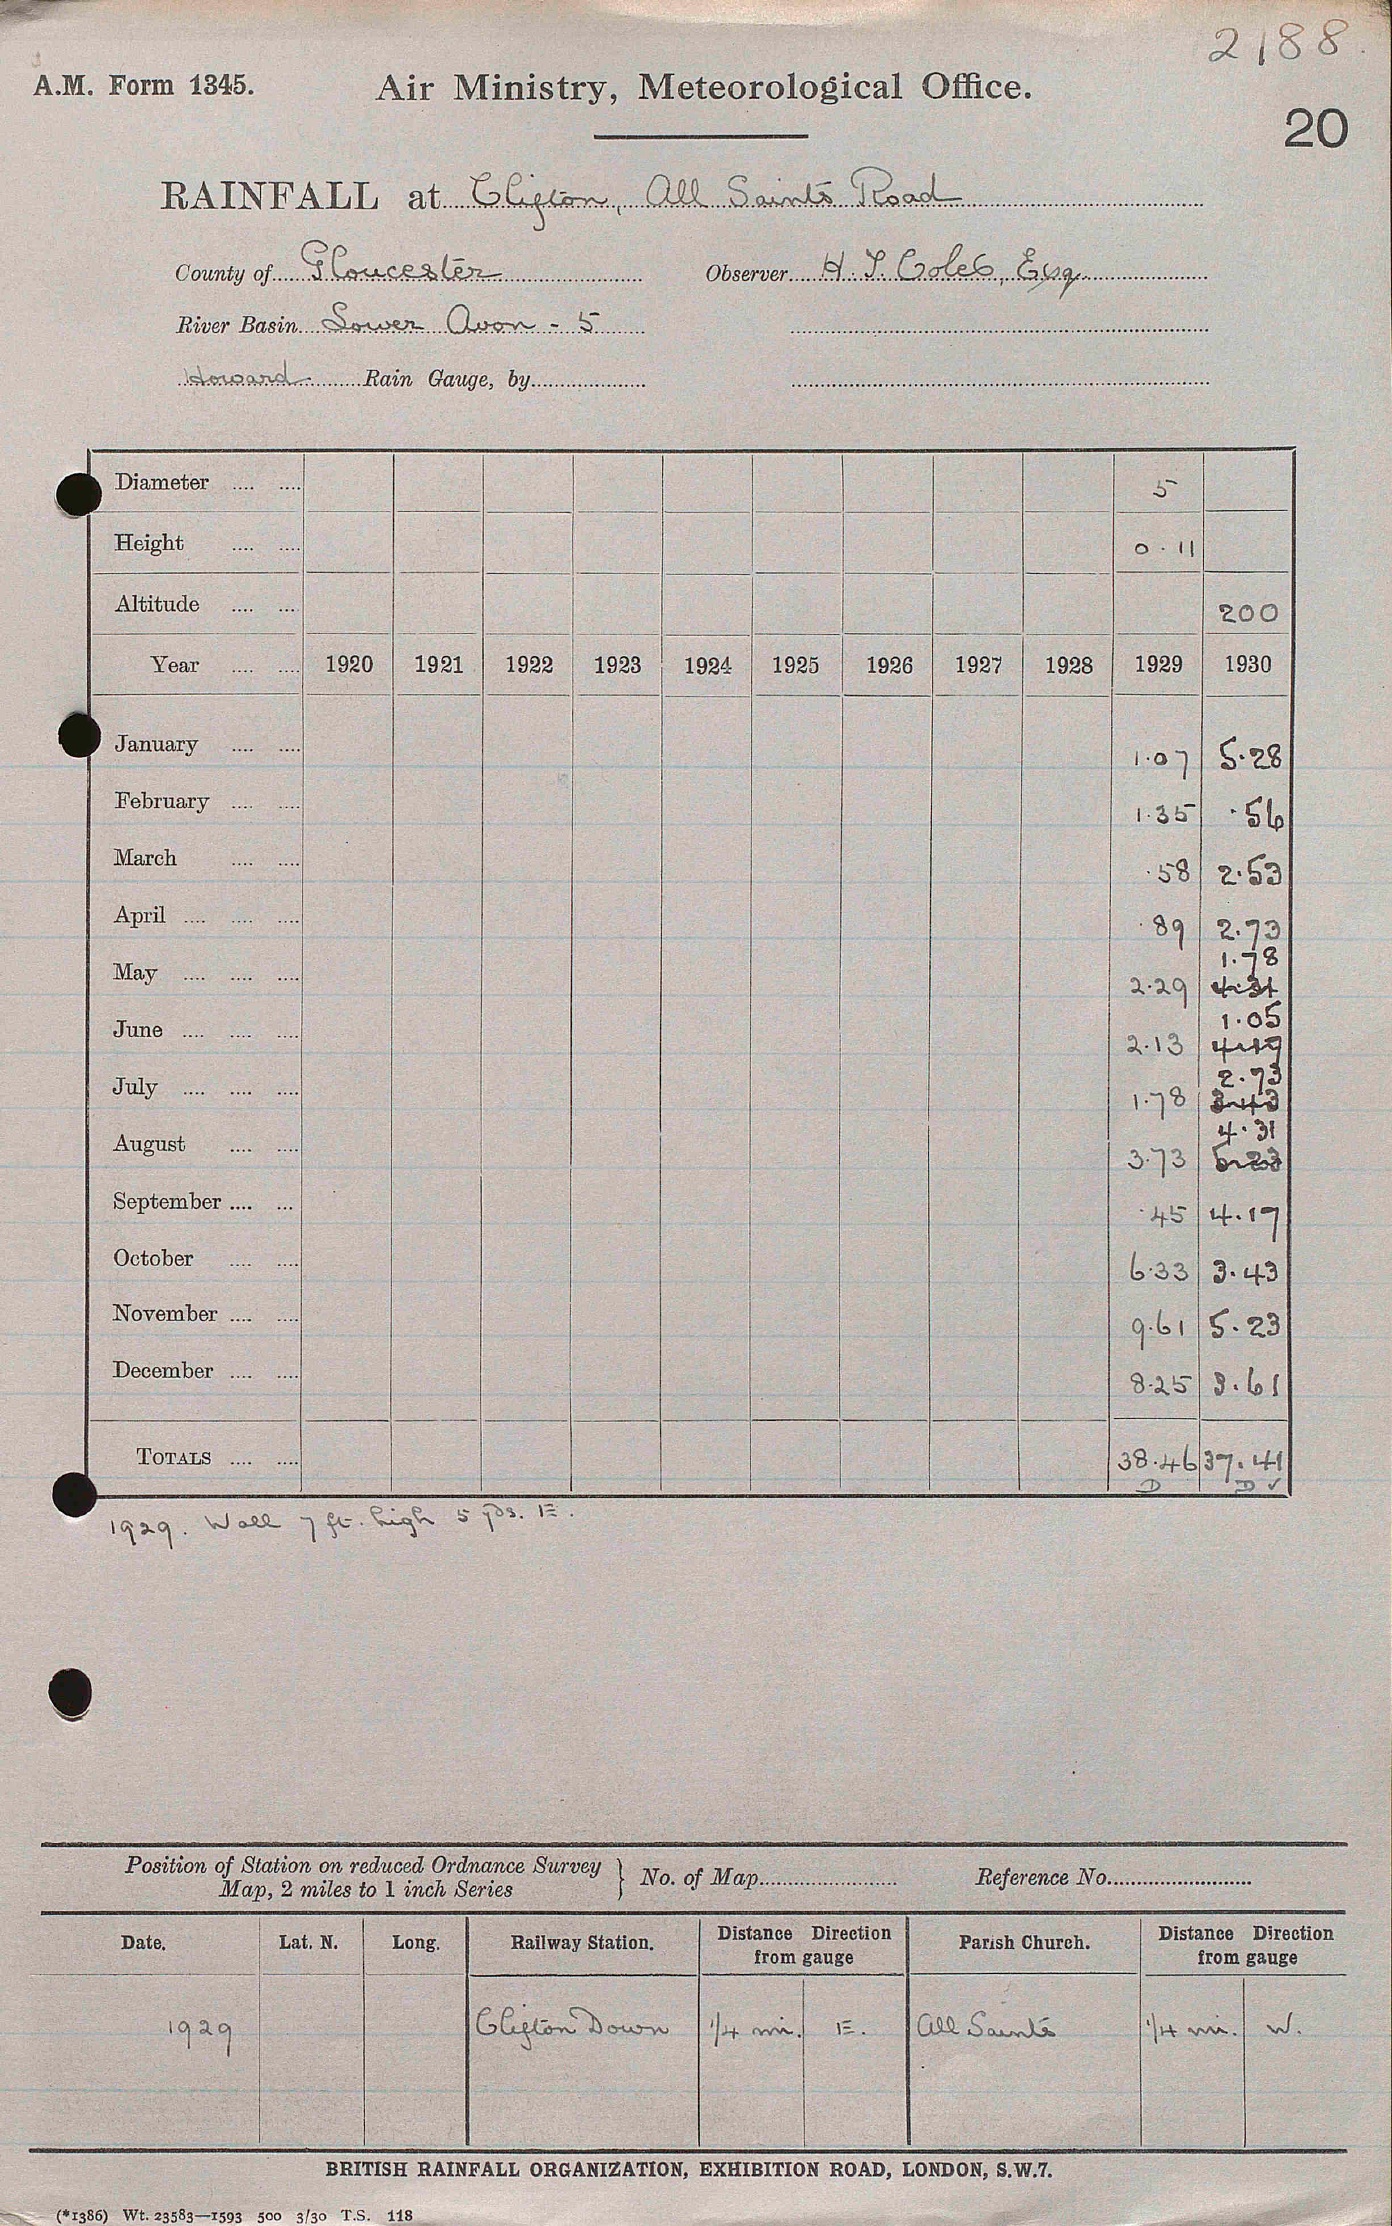 2188.
A.M. Form 1345. Air Ministry, Meteorological Office.
20
RAINFALL at Clifton, All Saints Road
County of Gloucester Observer H. T. Coles, Esq.
River Basin Lower Avon - 5
Howard Rain Gauge, by
Diameter 5
Height 0.11
Altitude 200
Year 1920 1921 1922 1923 1924 1925 1926 1927 1928 1929 1930
January 1.07 5.28
February 1.35 .56
March .58 2.53
April .89 2.73
1.78
May 2.29 4.31
1.05
June 2.13 4.19
2.73
July 1.78 3.43
4.31
August 3.73 5.23
September .45 4.17
October 6.33 3.43
November 9.61 5.23
December 8.25 3.61
TOTALS 38.46 37.41
D D ✓
1929. Wall 7 ft. high 5 yds. E.
Position of Station on reduced Ordnance Survey Map, 2 miles to 1 inch Series } No. of Map Reference No.
Date. Lat. N. Long. Railway Station. Distance Direction from gauge Parish Church. Distance Direction from gauge
1929 Clifton Down 1/4 mi. E. All Saints 1/4 mi. W.
BRITISH RAINFALL ORGANIZATION, EXHIBITION ROAD, LONDON, S.W.7.
(*1386) Wt. 23583—1593 500 3/30 T.S. 118